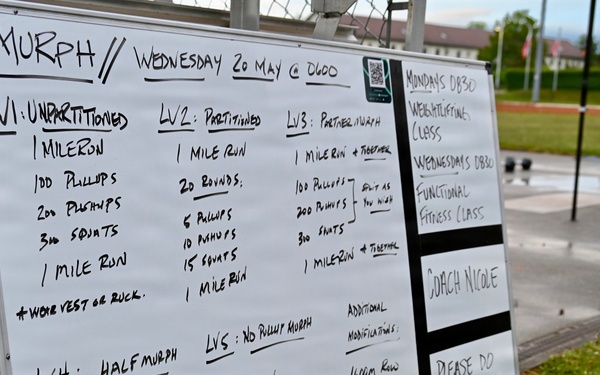 MURPH // WEDNESDAY 20 MAY @ 0600
V1: UNPARTITIONED
1 MILE RUN
100 PULLUPS
200 PUSHUPS
300 SQUATS
1 MILE RUN
* WEAR VEST OR RUCK.
LV2: PARTITIONED
1 MILE RUN
20 ROUNDS:
5 PULLUPS
10 PUSHUPS
15 SQUATS
1 MILE RUN
LV3: PARTNER MURPH
1 MILE RUN * TOGETHER
100 PULLUPS
200 PUSHUPS
300 SQUATS
SPLIT AS
YOU WISH
1 MILE RUN * TOGETHER
HALF MURPH
LV5: NO PULLUP MURPH
ADDITIONAL
MODIFICATIONS:
ROW
MONDAYS 0830
WEIGHTLIFTING
CLASS
WEDNESDAYS 0830
FUNCTIONAL
FITNESS CLASS
COACH NICOLE
PLEASE DO